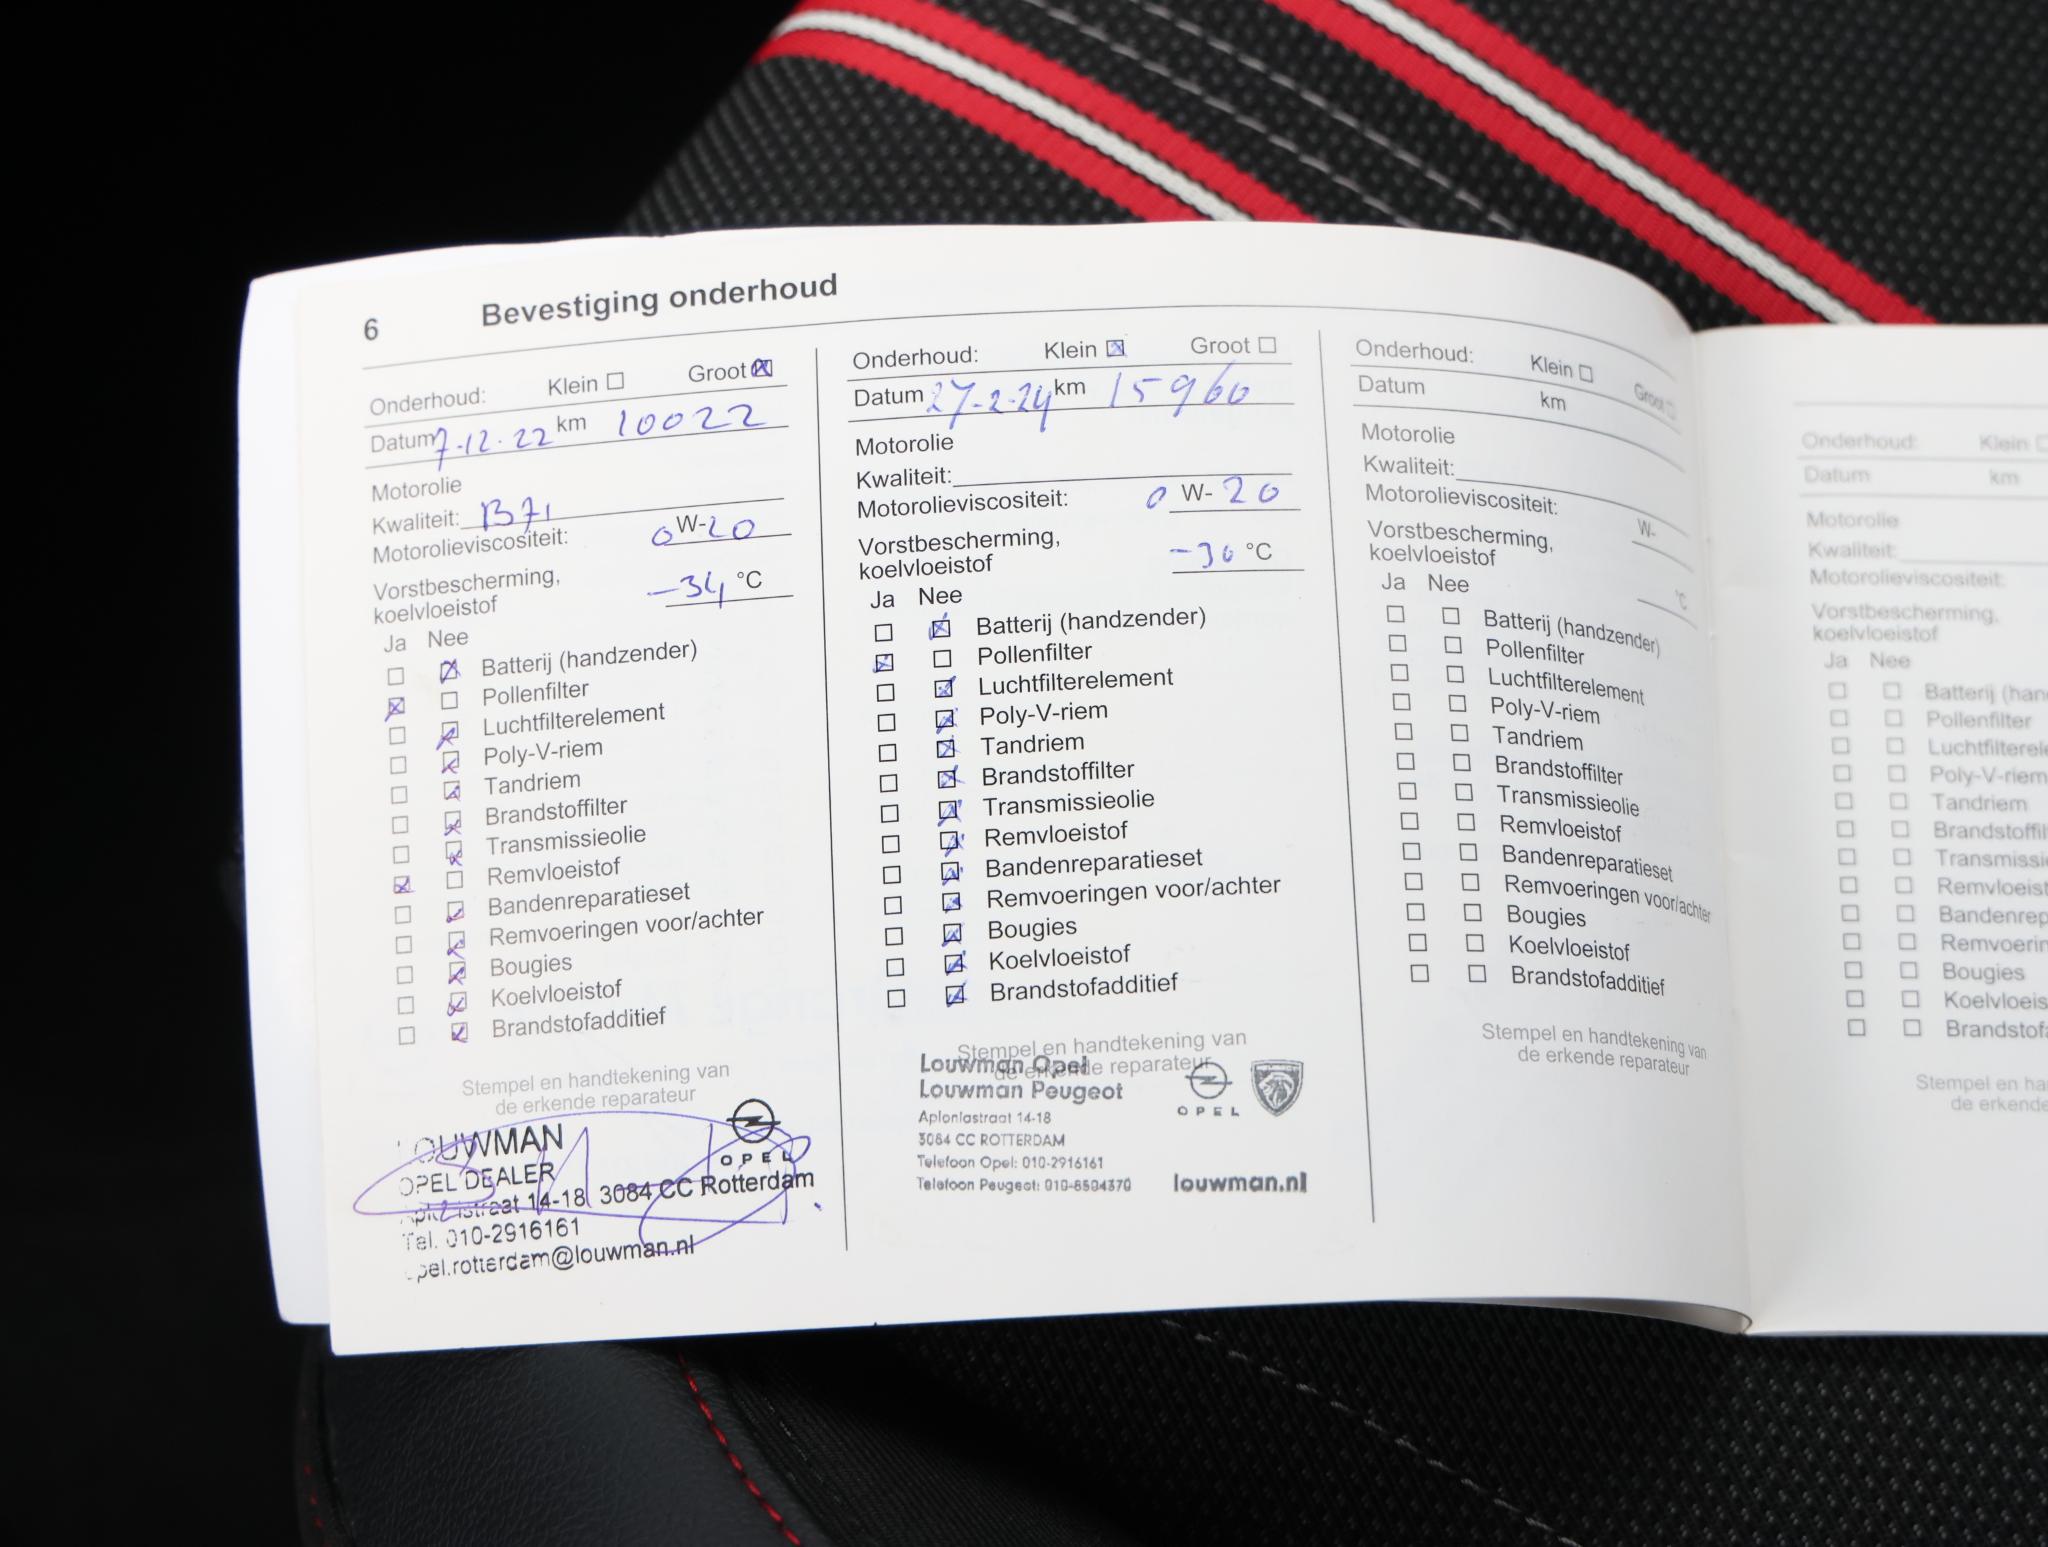 6 Bevestiging onderhoud
Onderhoud: Klein Groot
Datum 7-12-22 km 10022
Motorolie
Kwaliteit: B71
Motorolieviscositeit: 0 W-20
Vorstbescherming,
koelvloeistof -34 °C
Ja Nee
Batterij (handzender)
Pollenfilter
Luchtfilterelement
Poly-V-riem
Tandriem
Brandstoffilter
Transmissieolie
Remvloeistof
Bandenreparatieset
Remvoeringen voor/achter
Bougies
Koelvloeistof
Brandstofadditief
Stempel en handtekening van
de erkende reparateur
LOUWMAN
OPEL
OPEL DEALER
14-18 3084 CC Rotterdam
Tel. 010-2916161
opel.rotterdam@louwman.nl
Onderhoud: Klein Groot
Datum 27-2-24 km 15960
Motorolie
Kwaliteit:
Motorolieviscositeit: 0 W-20
Vorstbescherming,
koelvloeistof -30 °C
Ja Nee
Batterij (handzender)
Pollenfilter
Luchtfilterelement
Poly-V-riem
Tandriem
Brandstoffilter
Transmissieolie
Remvloeistof
Bandenreparatieset
Remvoeringen voor/achter
Bougies
Koelvloeistof
Brandstofadditief
Stempel en handtekening van
de erkende reparateur
Louwman Opel
Louwman Peugeot
OPEL
Aploniastraat 14-18
3084 CC ROTTERDAM
Telefoon Opel: 010-2916161
Telefoon Peugeot: 010-8504370
louwman.nl
Onderhoud: Klein Groot
Datum km
Motorolie
Kwaliteit:
Motorolieviscositeit: W-
Vorstbescherming,
koelvloeistof °C
Ja Nee
Batterij (handzender)
Pollenfilter
Luchtfilterelement
Poly-V-riem
Tandriem
Brandstoffilter
Transmissieolie
Remvloeistof
Bandenreparatieset
Remvoeringen voor/achter
Bougies
Koelvloeistof
Brandstofadditief
Stempel en handtekening van
de erkende reparateur
Onderhoud: Klein
Datum km
Motorolie
Kwaliteit:
Motorolieviscositeit:
Vorstbescherming,
koelvloeistof
Ja Nee
Batterij (han
Pollenfilter
Luchtfilterele
Poly-V-riem
Tandriem
Brandstoffil
Transmissi
Remvloeist
Bandenrep
Remvoerin
Bougies
Koelvloeis
Brandstofa
Stempel en ha
de erkende